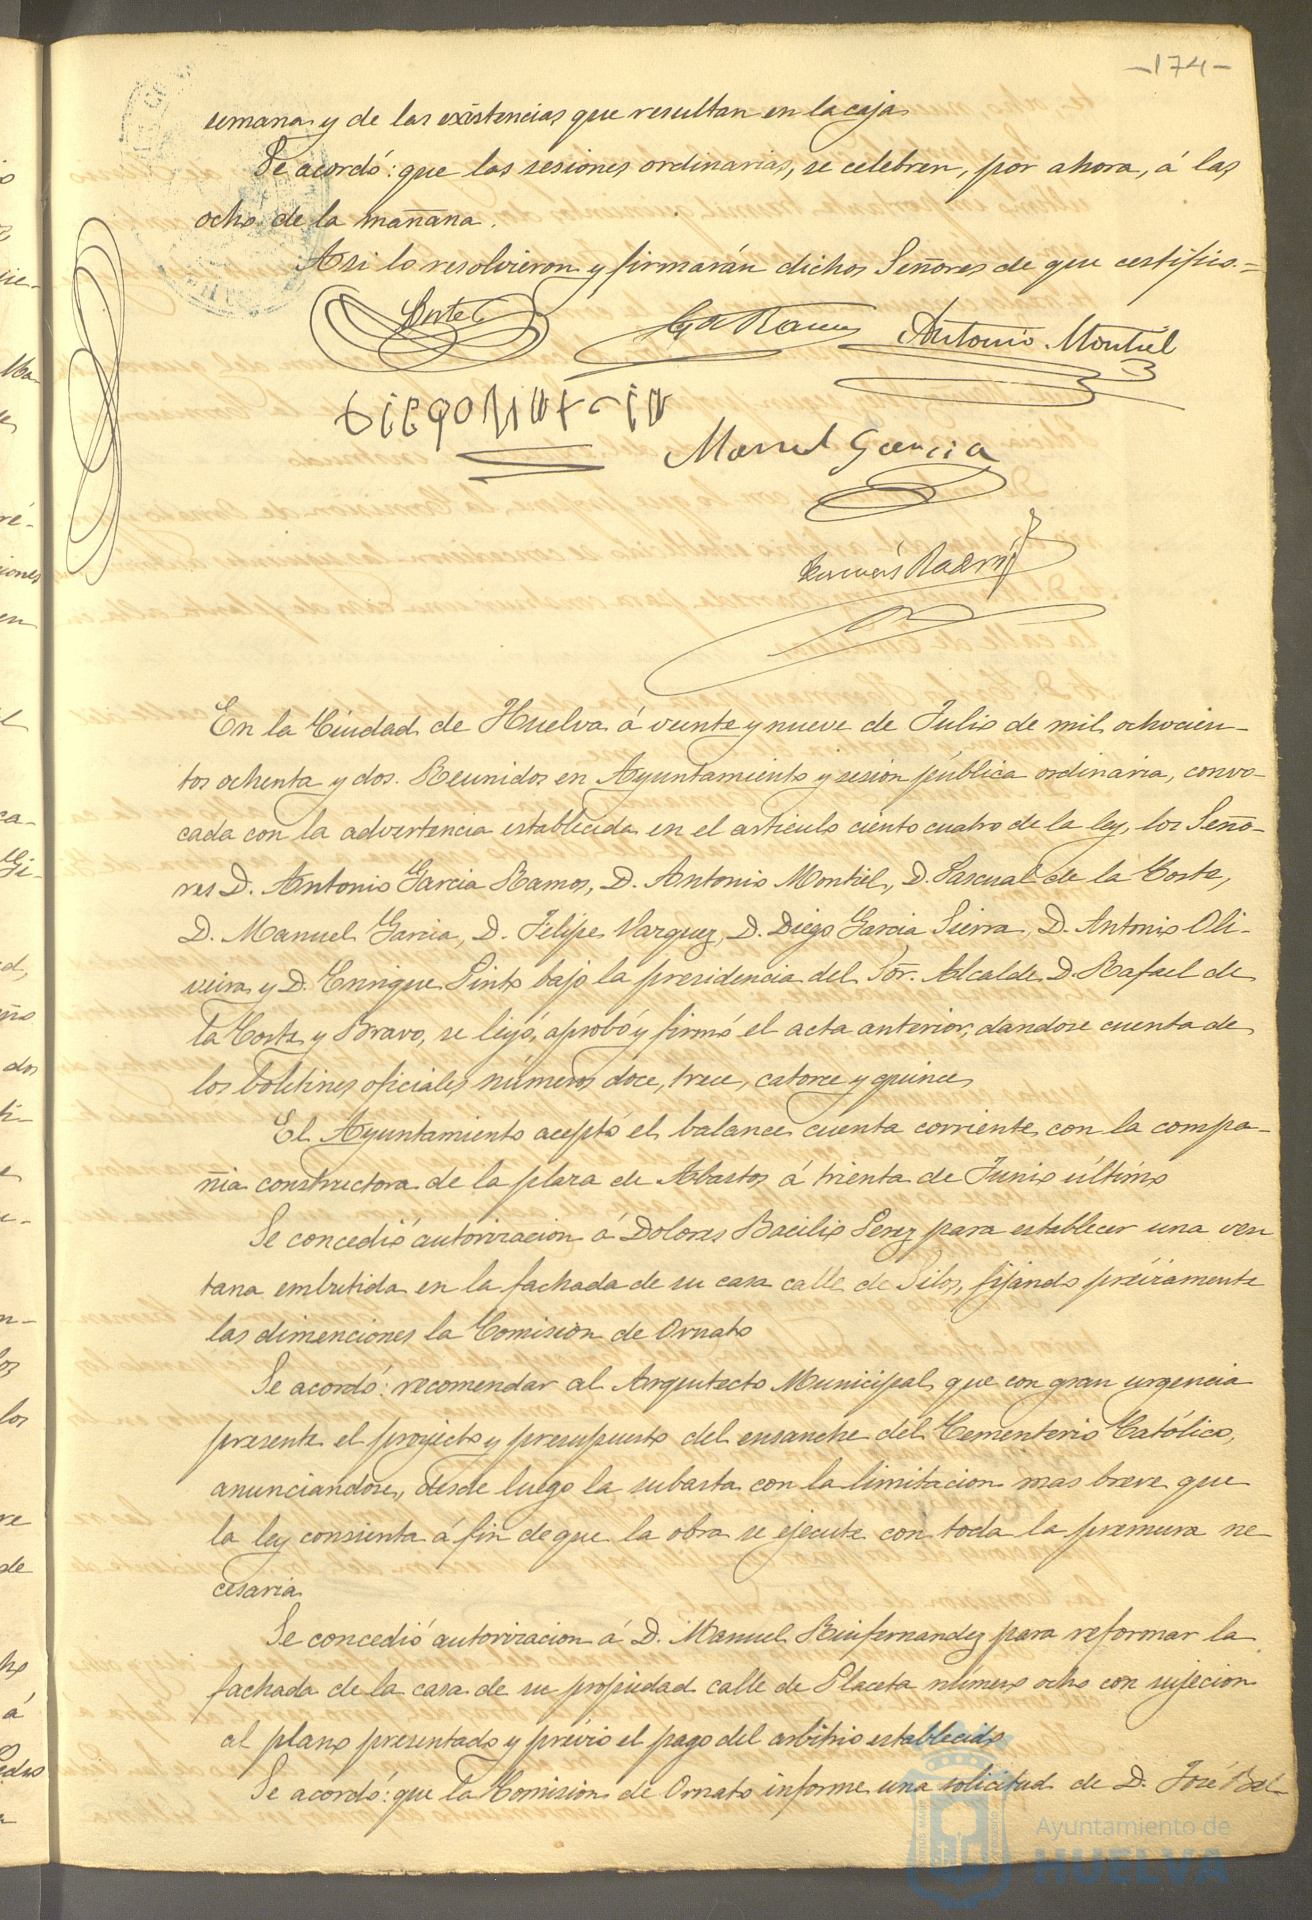 -174-
semana y de las existencias que resultan en la caja
Se acordó: que las sesiones ordinarias, se celebren, por ahora, á las
ocho de la mañana.
Asi lo resolvieron y firmarán dichos Señores de que certifico.=
Corte Ga Ramos Antonio Montiel
DIEGO GARCIA
Manuel Garcia
En la Ciudad de Huelva á veinte y nueve de Julio de mil ochocien-
tos ochenta y dos. Reunidos en Ayuntamiento y sesion pública ordinaria, convo-
cada con la advertencia establecida en el articulo ciento cuatro de la ley, los Seño-
res D. Antonio Garcia Ramos, D. Antonio Montiel, D. Pascual de la Corte,
D. Manuel Garcia, D. Felipe Vazquez, D. Diego Garcia Sierra, D. Antonio Oli-
veira y D. Enrique Pinto bajo la presidencia del Sor. Alcalde D. Rafael de
la Corte y Bravo, se leyó, aprobó y firmó el acta anterior, dandose cuenta de
los boletines oficiales números doce, trece, catorce y quince
El Ayuntamiento aceptó el balance cuenta corriente con la compa-
ñia constructora de la plaza de Abastos á trienta de Junio último
Se concedió autorizacion á Dolores Bacilio Perez para establecer una ven
tana embutida en la fachada de su casa calle de Silos, fijando préviamente
las dimenciones la Comision de Ornato
Se acordó: recomendar al Arquitecto Municipal que con gran urgencia
presente el proyecto y presupuesto del ensanche del Cementerio Católico,
anunciandose, desde luego la subasta con la limitacion mas breve que
la ley consienta á fin de que la obra se ejecute con toda la premura ne-
cesaria
Se concedió autorizacion á D. Manuel Ruifernandez para reformar la
fachada de la casa de su propiedad calle de Placeta número ocho con sujecion
al plano presentado y prévio el pago del arbitrio establecido
Se acordó: que la Comision de Ornato informe una solicitud de D. José Bel-
Ayuntamiento de
HUELVA